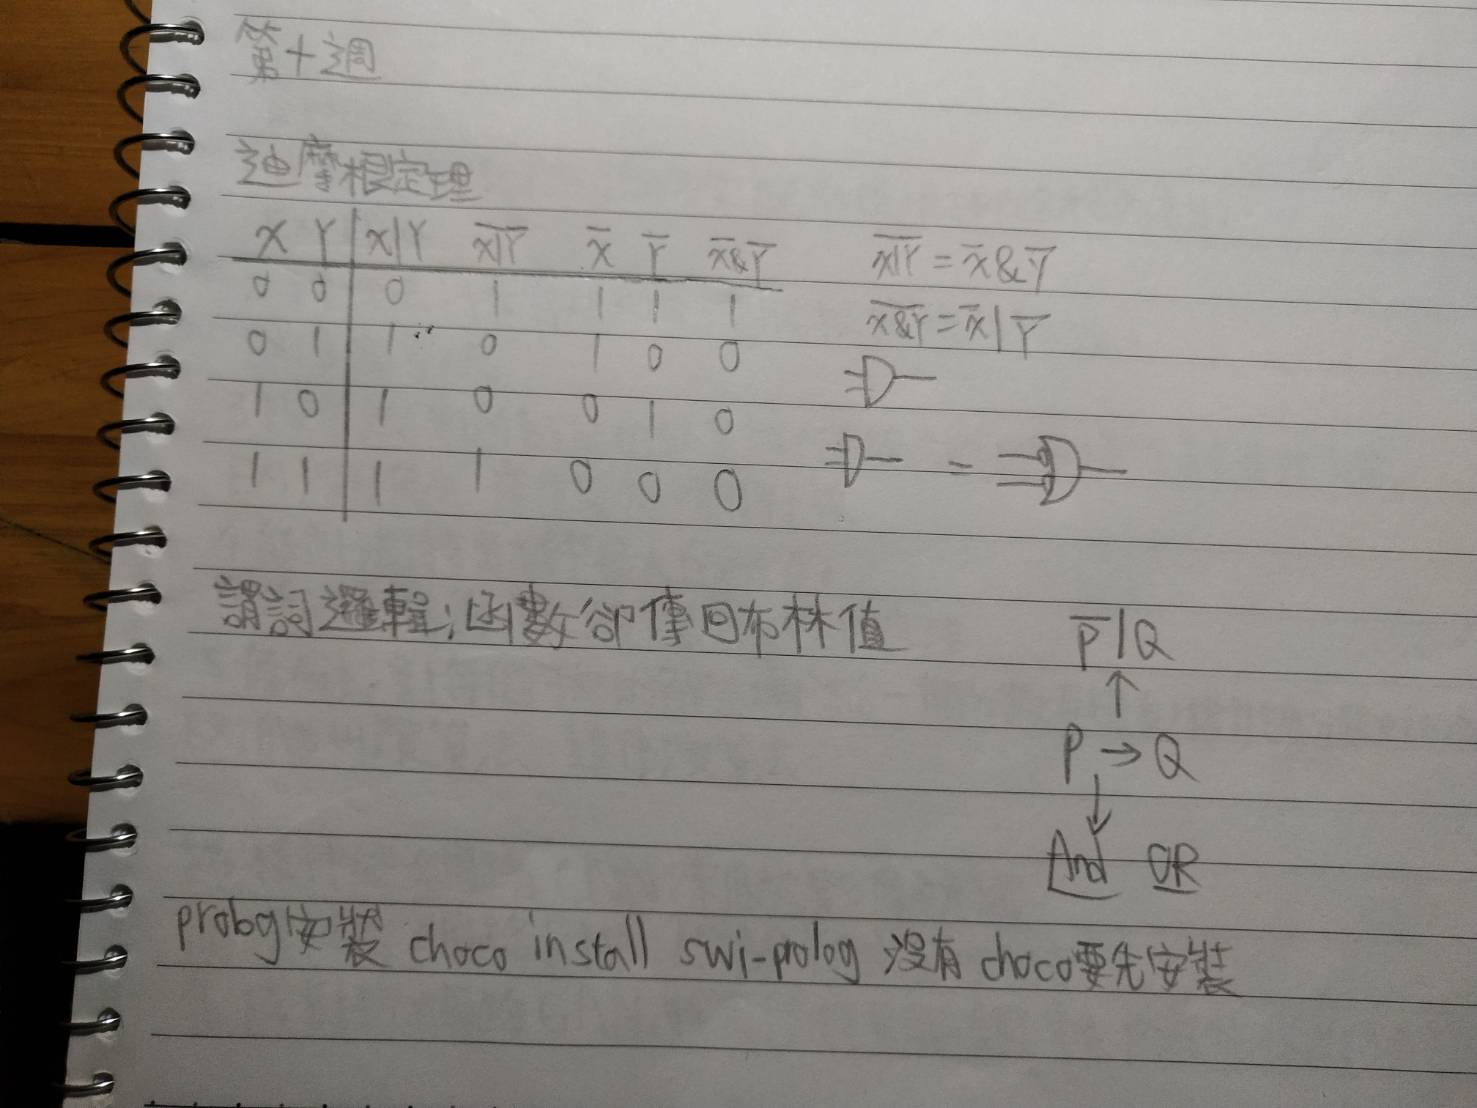 第十週
迪摩根定理
X Y X|Y X̅|̅Y̅ X̅ Y̅ X̅&Y̅
0 0 0 1 1 1 1
0 1 1 0 1 0 0
1 0 1 0 0 1 0
1 1 1 1 0 0 0
X̅|̅Y̅ = X̅&Y̅
X̅&̅Y̅ = X̅|Y̅
=
謂詞邏輯:函數卻傳回布林值
P̅|Q
↑
P → Q
↓
And OR
prolog安裝 choco install swi-prolog 沒有 choco要先安裝